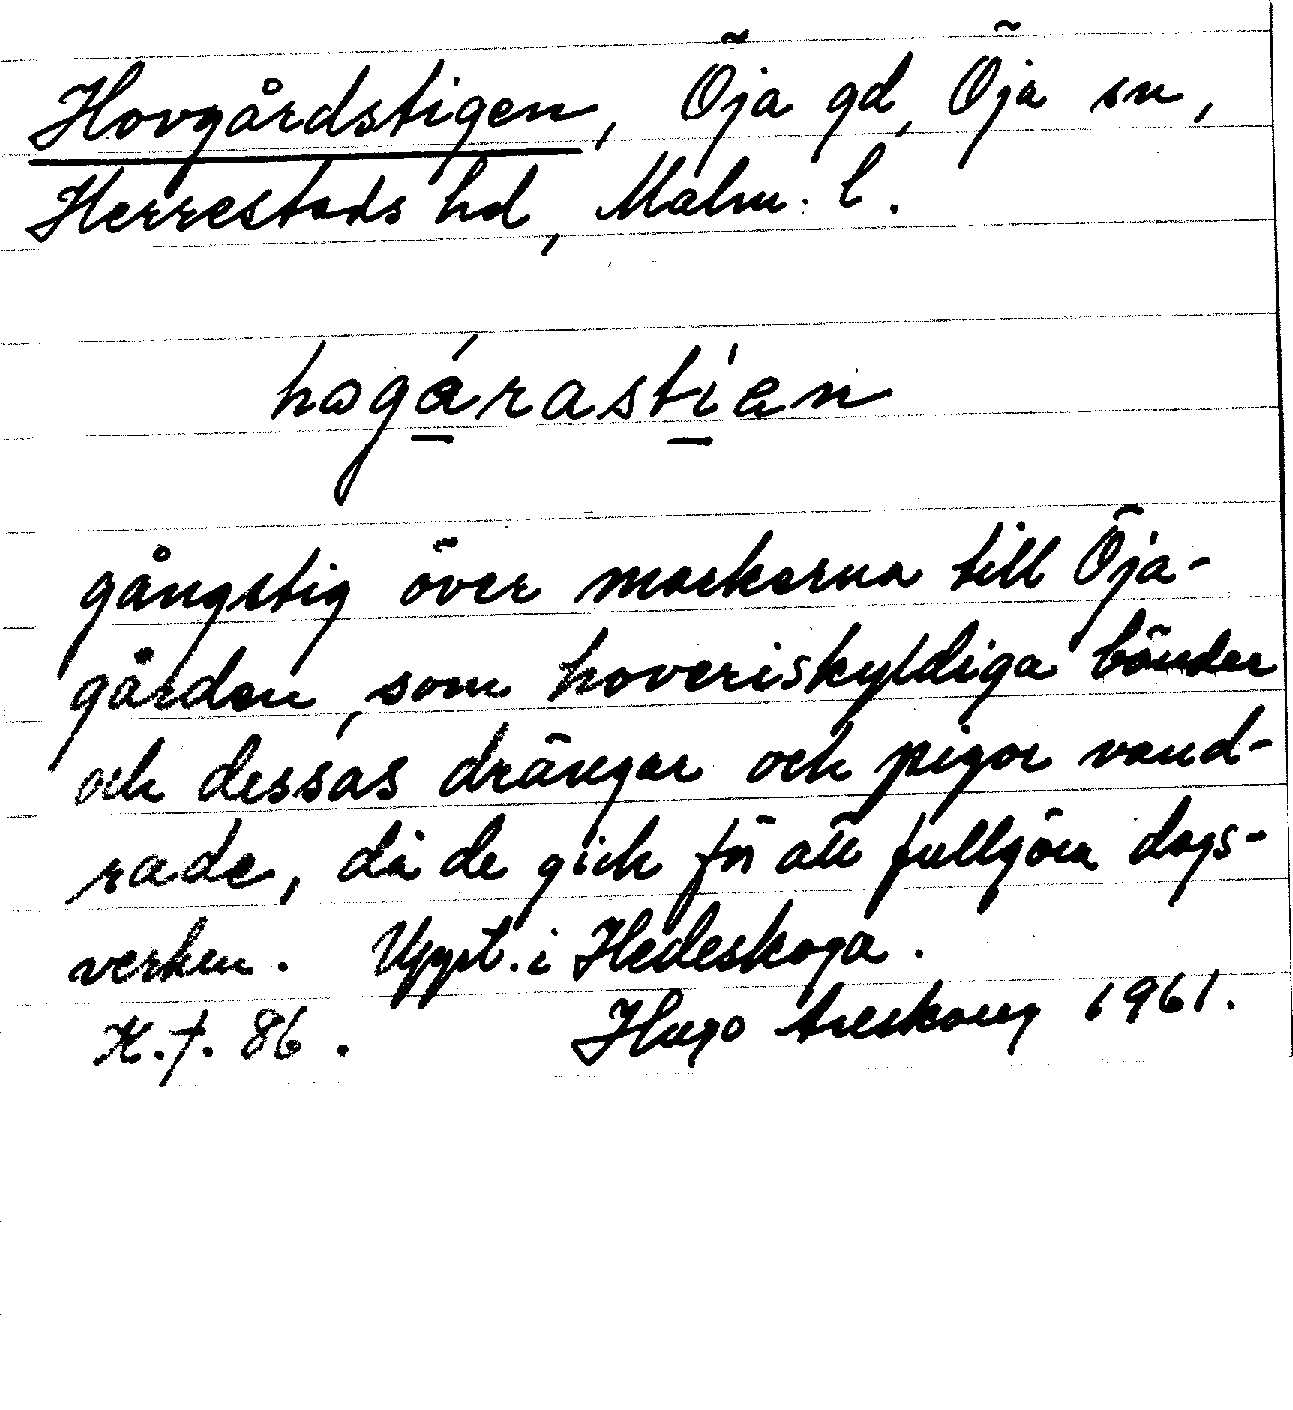 Hovgårdstigen, Öja gd, Öja sn,
Herrestads hd, Malm. l.
hogárastíen
gångstig över markerna till Öja-
gården, som hoveriskyldiga bönder
och dessas drängar och pigor vand-
rade, då de gick för att fullgöra dags-
verken. Uppt. i Hedeskoga.
K.f. 86. Hugo Areskoug 1961.